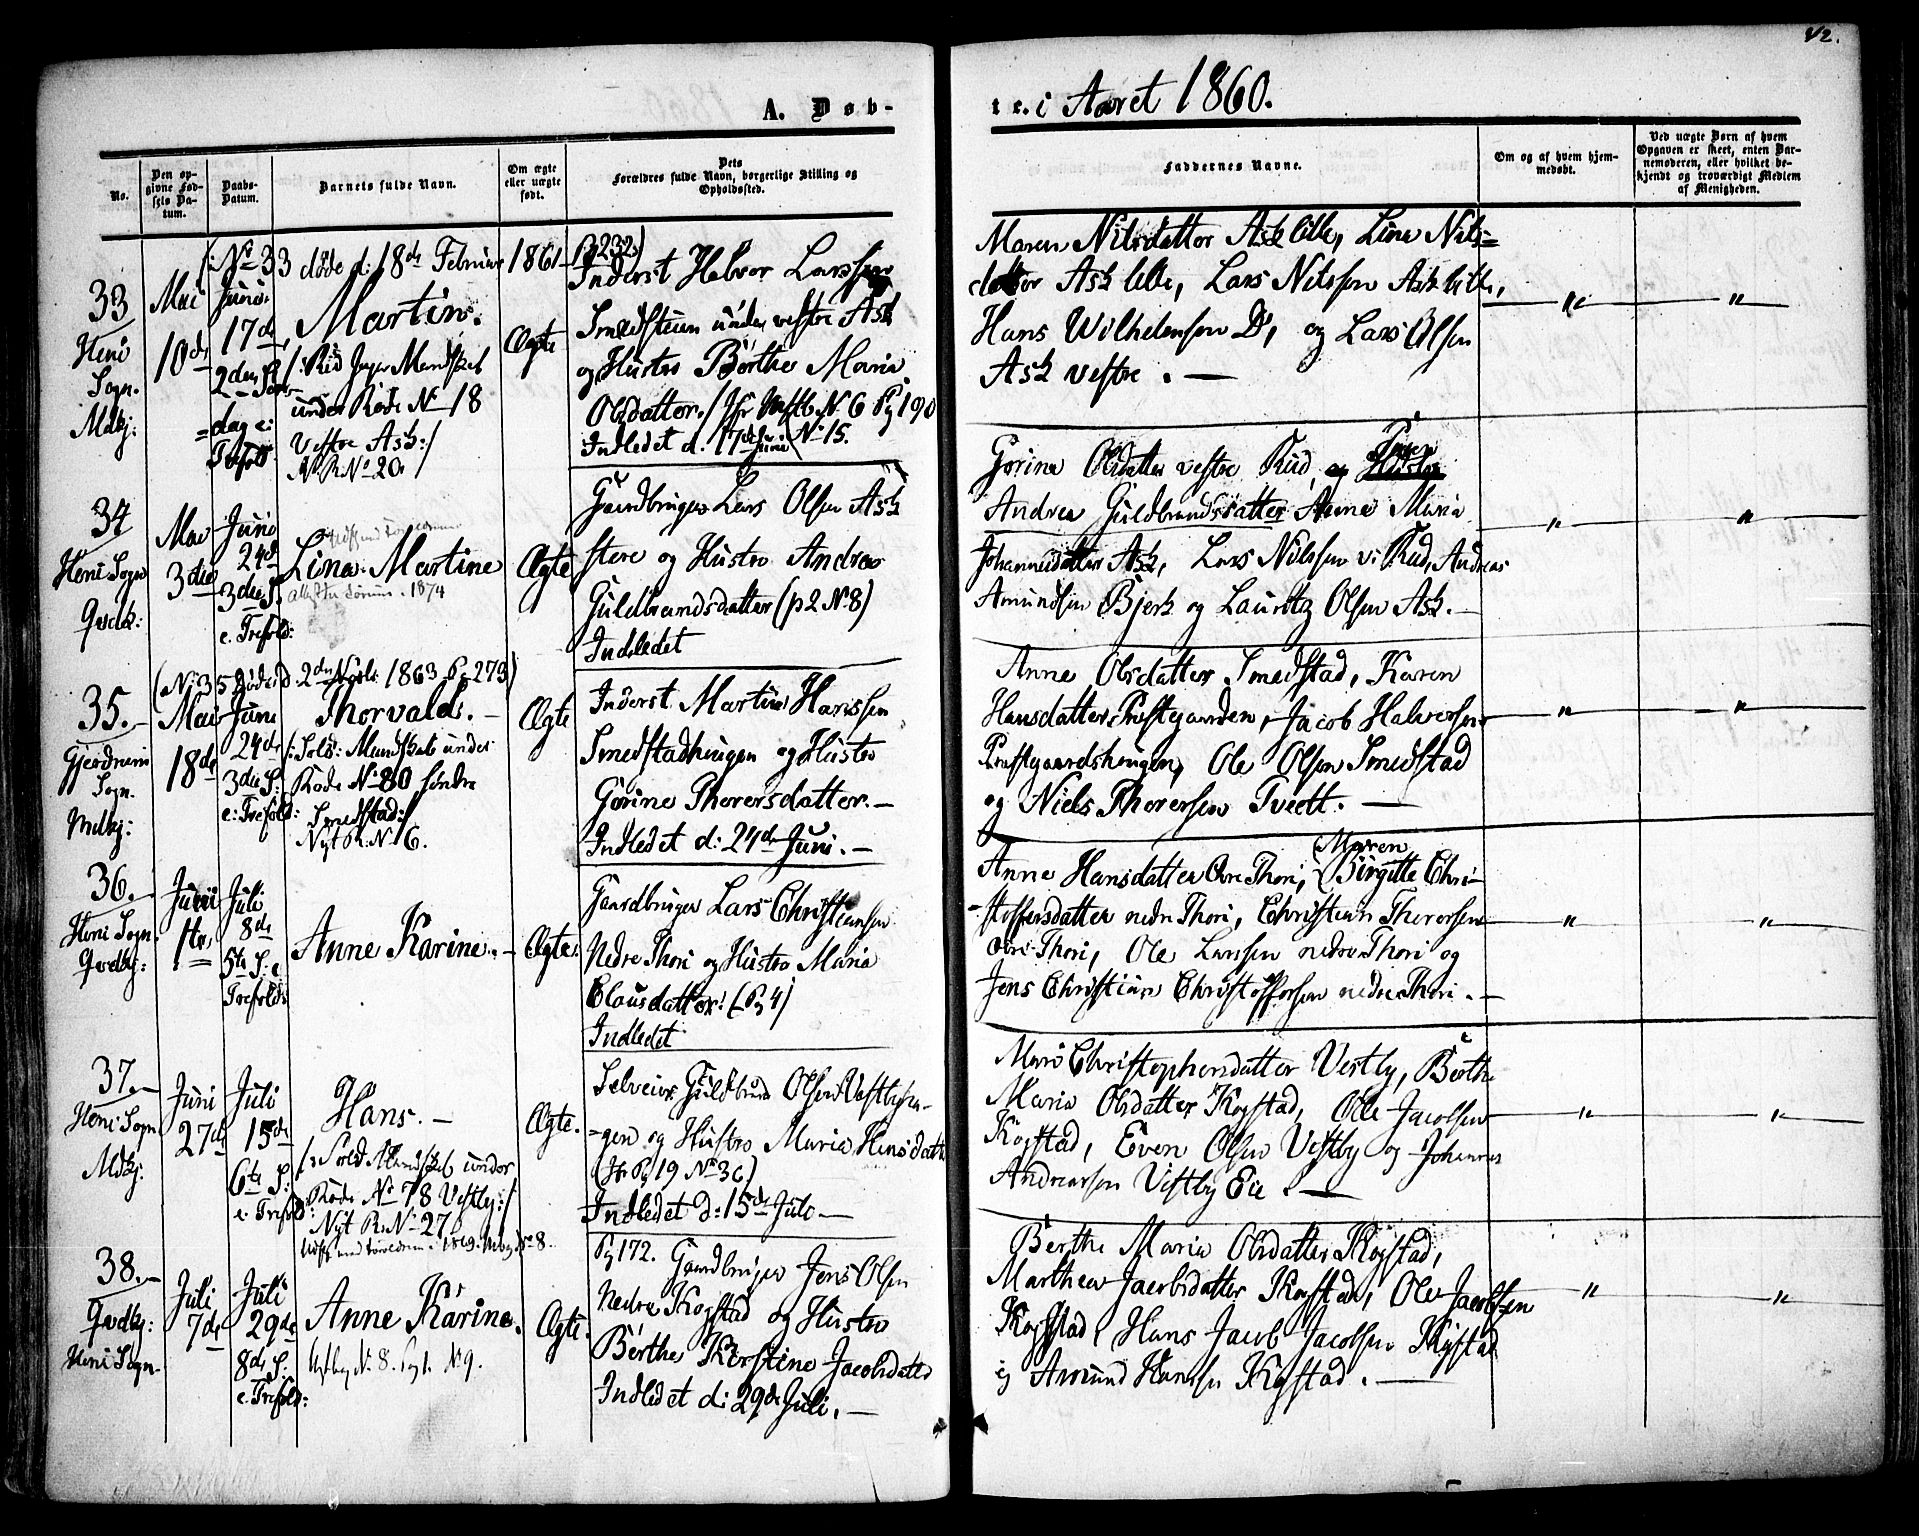 42.
A. Døb-
te. i Aaret 1860.
No.
Den op-
givne Fød-
sels Da-
tum.
Daabs-
Datum.
Barnets fulde Navn.
Om ægte
eller uægte
født.
Dets
Forældres fulde Navn, borgerlige Stilling og
Opholdssted.
Faddernes Navne.
Om og af hvem hjem-
medøbt.
Ved uægte Børn af hvem
Opgaven er skeet, enten Bar-
nemoderen, eller hvilket be-
kjendt og troværdigt Medlem
af Menigheden.
(No 33 døde d: 18de Februar 1861 Pg 232)
33
Heni
Sogn.
Mdkj:
Mai
10de
Juni
17de
2den S.
dag e:
Trefold:
Martin.
under Rode No 18
Vestre Ask:/
N.R.No 20./
Ægte
Inderst Halvor Larssen
Smedstuen under vestre Ask
og Hustro Berthe Maria
Olsdatter. / No 6 Pg 190
Indledet d. 17de Juni No 15.
Maren Nilsdatter Ask lille, Line Nils=
datter Ask lille, Lars Nilssen Ask lille,
Hans Wilhelmsen Do, og Lars Olsen
Ask vestre. —
"
"
34
Heni Sogn
Qvdkj:
Mai
3die
Juni
24de
3die S.
e. Trefold:
Lina Martine
1874
Ægte
Gaardbruger Lars Olsen Ask
store og Hustro Andrea
Guldbrandsdatter (p 2 No 8)
Indledet
Gorine Olsdatter vestre Rud, og
Andrea Guldbrandsdatter Anne Maria
Johannesdatter Ask, Lars Nilssen v: Rud, Andreas
Amundsen Bjerk og Lauritz Olsen Ask. —
"
"
(No 35 døde d. 2den 1863 Pg 273)
35. —
Gjerdrum
Sogn.
Mdkj:
Mai
18de
Juni
24de
3die S:
e: Trefold:
Thorvald. —
/: Sold: Mandskab under
Rode No 80 søndre
Smedstad:/
Nyt R. No 16.
Ægte
Inderst Martin Hanssen
Smedstadhaugen og Hustro
Gorine Thorersdatter. —
Indledet d: 24de Juni. —
Anne Olsdatter Smedstad, Karen
Hansdatter Præstgaarden, Jacob Halvorsen
Præstgaardshaugen, Ole Olsen Smedstad
og Niels Thorersen Tvedt. —
"
"
36. —
Heni Sogn.
Qvdkj:
Juni
1ste
Juli
8de
5te S: e
Trefold:
Anne Karine. —
Ægte.
Gaardbruger Lars Christiansen
Nedre Thori og Hustro Maria
Clausdatter. (Pg 4)
Indledet
Anne Hansdatter Øvre Thori, Maren Birgitte Chri-
-stoffersdatter nedre Thori, Christian Thorersen
øvre Thori, Ole Larssen nedre Thori og
Jens Christian Christoffersen nedre Thori. —
"
"
37. —
Heni Sogn
Mdkj:
Juni
27de
Juli
15de
6te S:
e. Trefold:
Hans. —
/: Sold Mandskab under
Rode No 78 Vestby:/
Nyt R. No 27
1869. No 8.
Ægte.
Selveier Guldbrand Olsen Vestbyha-
-gen og Hustro Maria Hansdatter
(Pg 19 No 36)
Indledet d: 15de Juli —
Mari Christophersdatter Vestby, Berthe
Maria Olsdatter Kogstad, Ole Jacobsen
Kogstad, Even Olsen Vestby og Johannes
Andreassen Vestby Eie. —
"
"
38. —
Qvdkj:
Heni Sogn.
Juli
7de
Juli
29de
8de S:
e. Trefold:
Anne Karine.
No 8. Pg 1. No 9.
Ægte.
Pg 172. Gaardbruger Jens Olsen
Nedre Kogstad og Hustro
Berthe Kirstine Jacobsdatter
Indledet d: 29de Juli. —
Berthe Maria Olsdatter Kogstad,
Marthea Jacobsdatter Kogstad, Ole Jacobsen
Kogstad, Hans Jacob Jacobsen Kogstad
og Amund Hansen Kogstad. —
"
"